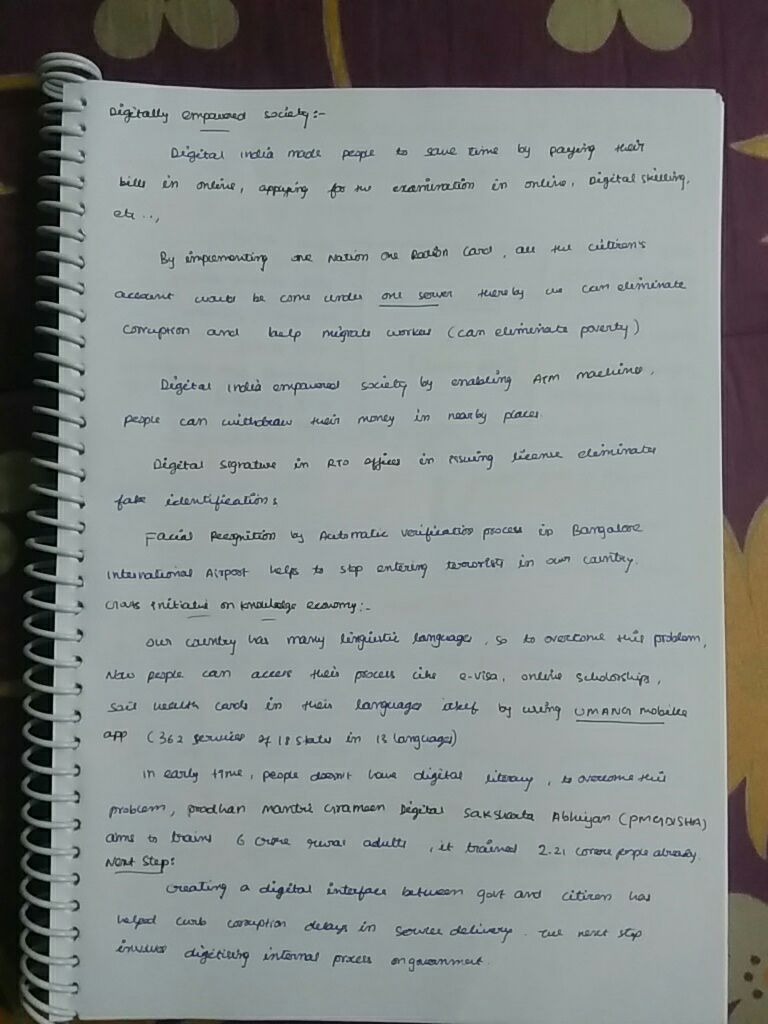 Digitally empowered society:-
Digital India made people to save time by paying their
bills in online, applying for the examination in online, Digital skilling,
etc..,
By implementing one Nation One Ration Card, all the citizen's
account would be come under one server thereby we can eliminate
corruption and help migrate worker (can eliminate poverty)
Digital India empowered society by enabling ATM machines,
people can withdraw their money in nearby places.
Digital signature in RTO offices in issuing license eliminates
fake identifications
Facial Recognition by Automatic verification process in Bangalore
International Airport helps to stop entering terrorists in our country.
Govts initiatie on knowledge economy:-
Our country has many linguistic languages, so to overcome this problem,
Now people can access their process like e-visa, online scholorships,
soil health cards in their languages itself by using UMANG mobile
app (362 services of 18 states in 13 languages)
In early time, people doesn't have digital literacy, to overcome this
problem, pradhan mantri Grameen Digital Saksharta Abhiyan (PMGDISHA)
aims to trains 6 crore rural adults, it trained 2.21 crore people already.
Next Step:
creating a digital interface between govt and citizen has
helped curb corruption delays in service delivery. The next step
involves digitising internal process on government.